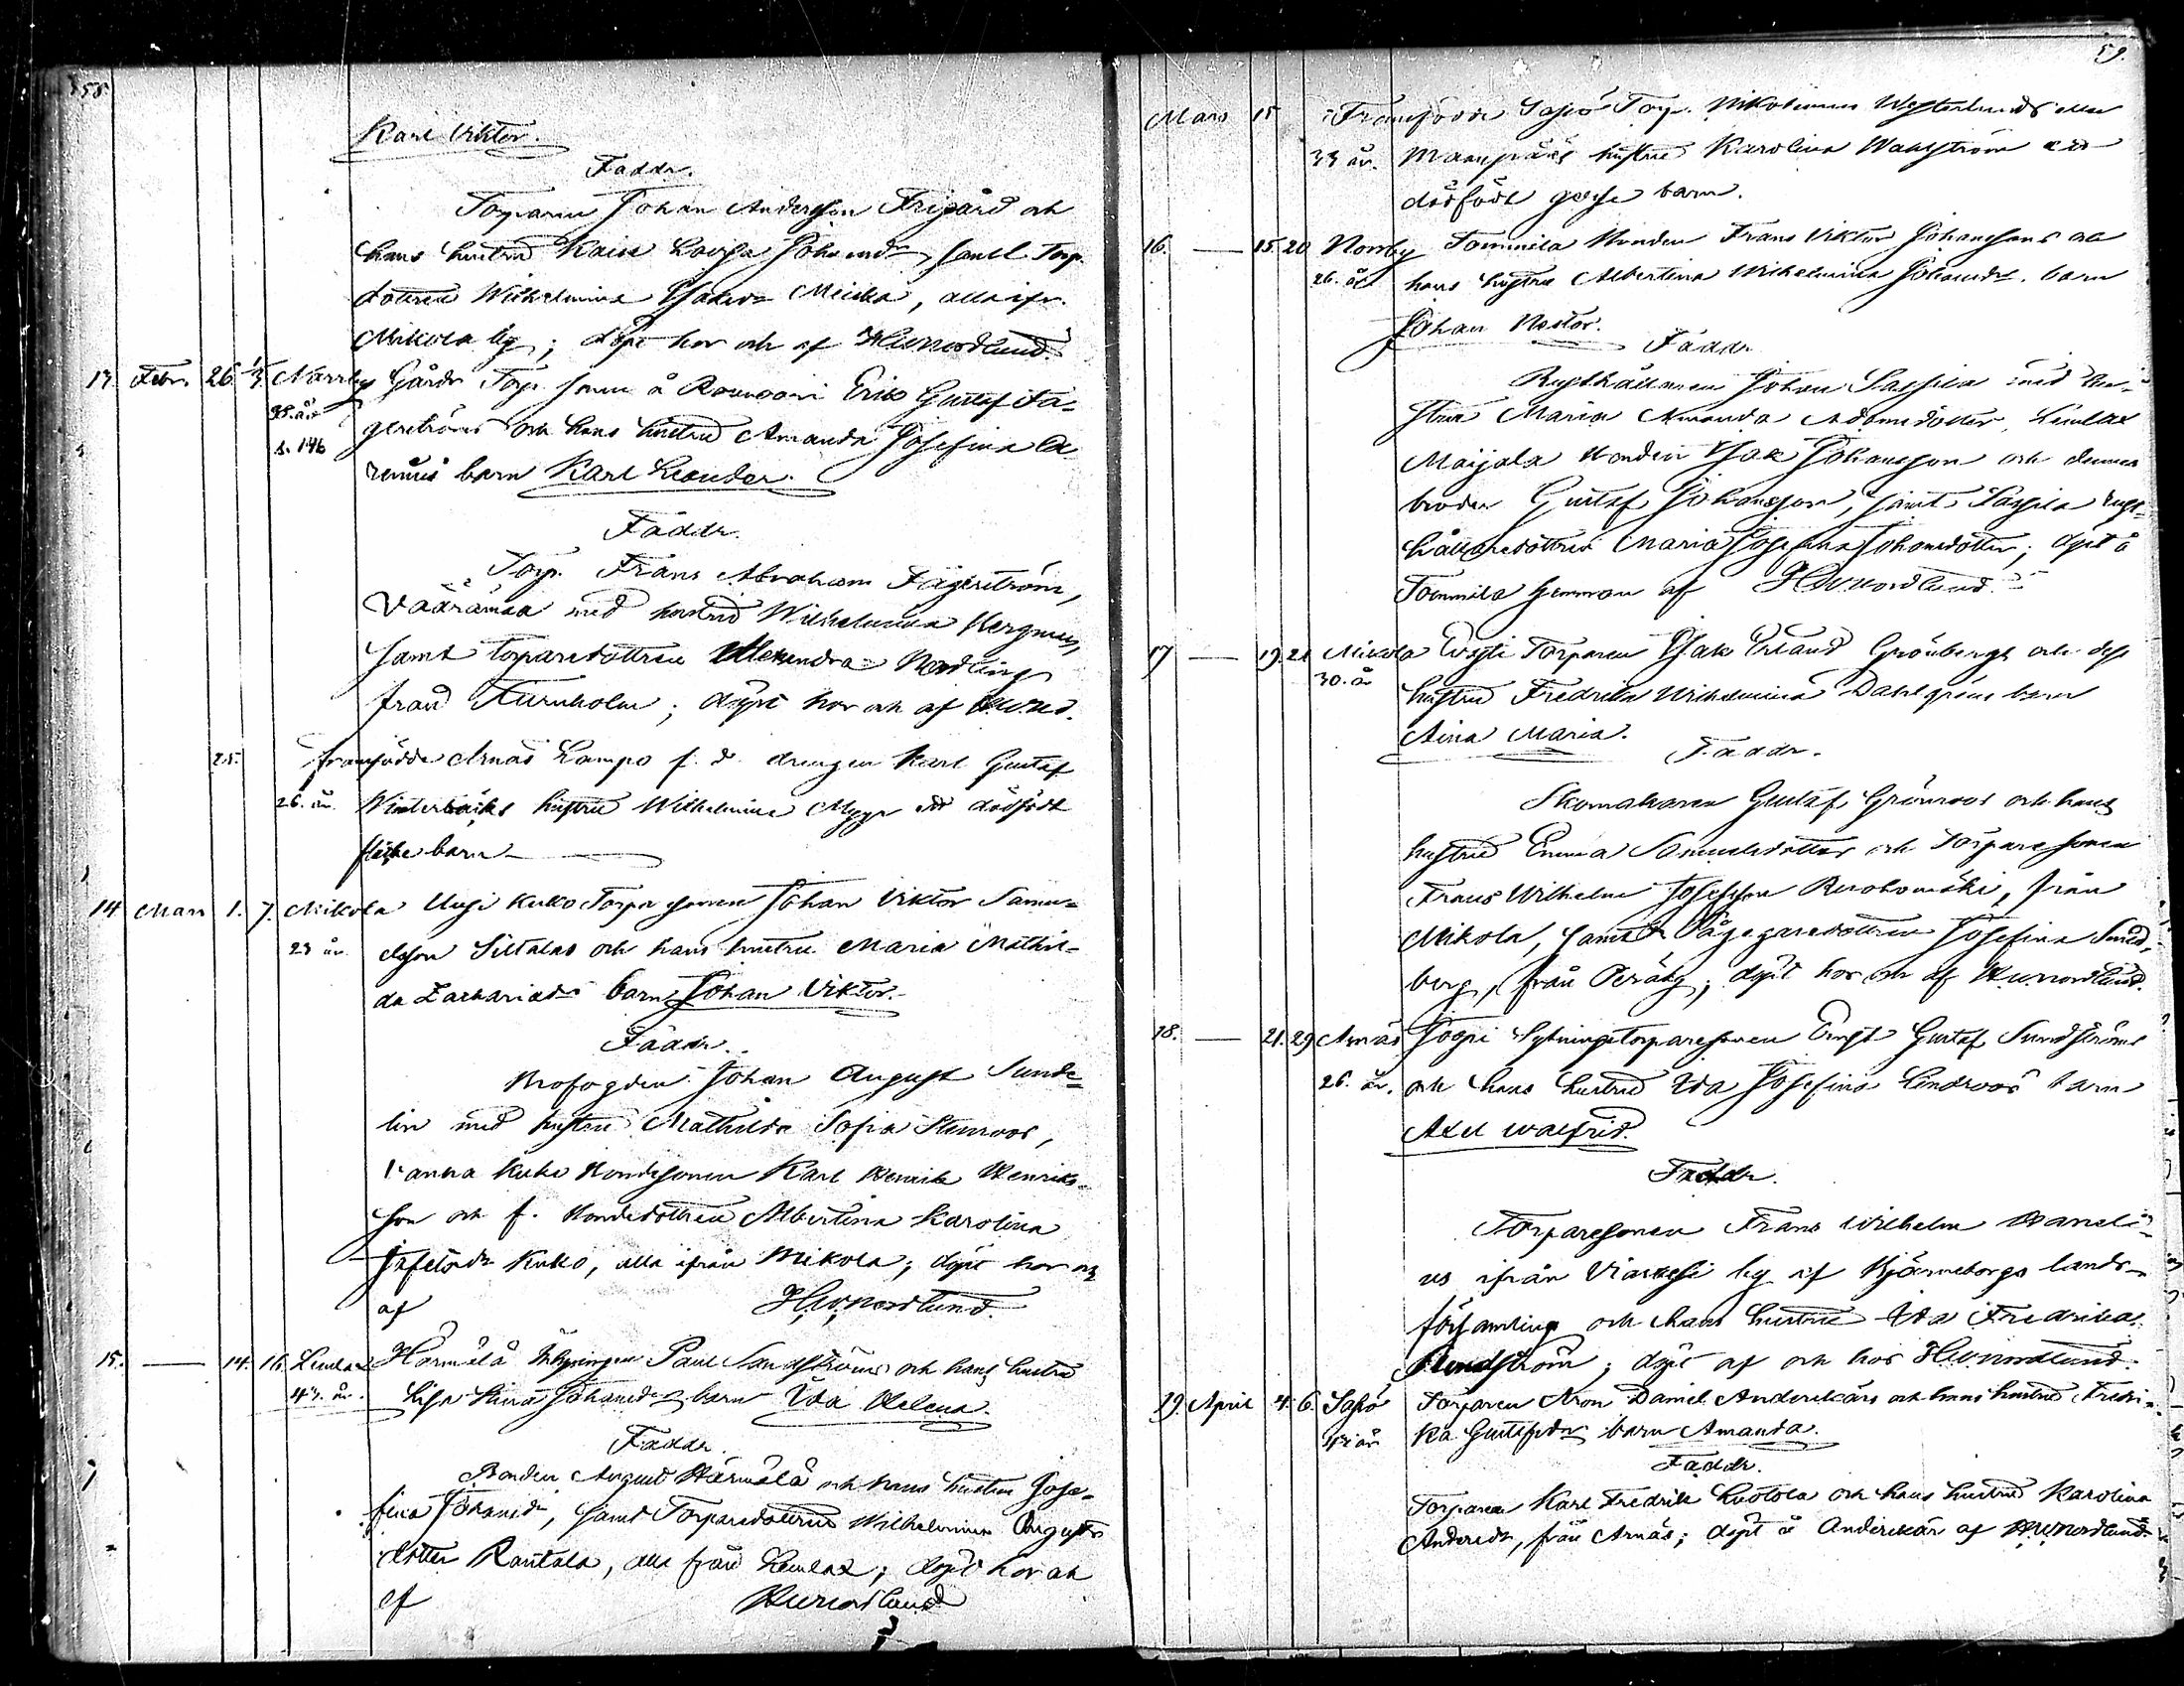 58.
Karl Viktor.
Faddr.
Torparen Johan Andersson Frigård och
hans hustru Kaisa Lovisa Johansdr, samt Torp.
dottren Wilhelmina Isaksdr Meikka, alla ifr.
Mikola by; döpt hos och af HWNordlund.
13. Febr. 26. 1/3 Norrby Gårds Torp. sonen å Erik Gustaf Fa-
s. 146 gerströms och hans hustru Amanda Josefina
barn Karl Leander.
Faddr.
Torp. Frans Abraham Fagerström,
med hustru Wilhelmina
samt Torparedottren Alexandra Nordling
från Furuholm; döpt hos och af HWNd.
25. framfödde Arnäs Lampo f. d. drengen Karl Gustaf
26. år. Winterbäcks hustru Wilhelmina Mygg ett dödfödt
flicke barn
14 Mars 1. 7. Mikola Uusi Kuko Torpa sonen Johan Viktor Samu-
23 år. elsson Siltalas och hans hustru Maria Mathil-
da Zachariædr barn Johan Viktor.
Faddr.
Rofogden Johan August Sunde-
lin med hustru Mathilda Sofia Stenroos,
Vanha Kuko Bondesonen Karl Henrik Henriks-
son och f. Bondedottren Albertina Karolina
Kuko, alla ifrån Mikola; döpt hos och
af HWNordlund.
15. — 14. 16. Lemlax Härmälä Inhysingen Paul Sandströms och hans hustru
43. år. Lisa Stina Johansdr barn Ida Helena.
Faddr.
Bonden August Härmälä och hans hustru Jose-
fina Johansdr, samt Torparedottren Wilhelmina Augusts
dotter Rantala, alla från Lemlax; döpt hos och
af HWNordlund
59.
Mars 15 Framfödde Sastö Torp. Nikodemus Westerlunds
33 år. hustru Karolina Wahlström ett
dödfödt gosse barn.
16. — 15. 20 Norrby Tommila Bonden Frans Viktor Johanssons och
26. år hans hustru Albertina Wilhelmina Johansdr. barn
Johan Nestor.
Faddr
Rusthållaren Johan Sassila med hu-
stru Maria Amanda Adamsdotter, Lemlax
Maijala Bonden Isak Johansson och dennes
broder Gustaf Johansson, samt Sassila rust-
hållaredottren Maria Josefina Johansdotter; döpt å
Tommila hemman af HWNordlund.
17 — 19. 21 Mikola Torparen Isak Erland Grönbergs och dess
30. år hustru Fredrika Wilhelmina Dahlgrens barn
Aina Maria.
Faddr.
Skomakaren Gustaf Grönroos och hans
hustru Emma Samuelsdotter och Torpare sonen
Frans Wilhelm Josefsson Ruohomäki, från
Mikola, samt Josefina Smed-
berg, från Peräby; döpt hos och af HWNordlund.
18. — 21. 29 Arnäs Sytningstorparesonen Ernst Gustaf Sundströms
26. år. och hans hustru Ida Josefina Lindroos barn
Axel Walfrid.
Faddr.
Torparesonen Frans Wilhelm Daneli-
us ifrån by af Björneborgs lands-
församling och hans hustru Ida Fredrika
Sundström; döpt af och hos HWNordlund.
19. April 4. 6. Sastö Torparen Aron Daniel Anderskärs och hans hustru Fredri-
43 år ka Gustafsdr barn Amanda.
Faddr.
Torparen Karl Fredrik Luotola och hans hustru Karolina
Andersdr, från Arnäs; döpt å Anderskär af HWNordlund